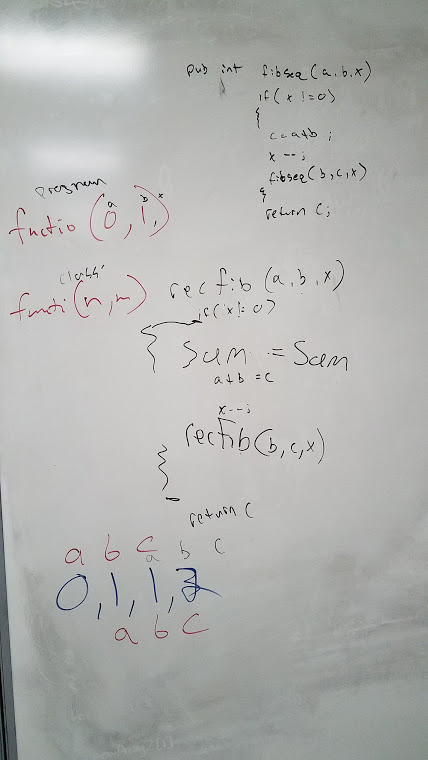 pub int fibseq(a,b,x)
if(x!=0)
{
c=a+b;
x--;
fibseq(b,c,x)
}
return c;
program
a b x
functio(0,1,)
class
functi(n,m)
recfib(a,b,x)
if(x!=0)
{
Sum = Sum
a+b=c
x--;
recfib(b,c,x)
}
return c
a b c
a b c
0,1,1,2
a b c